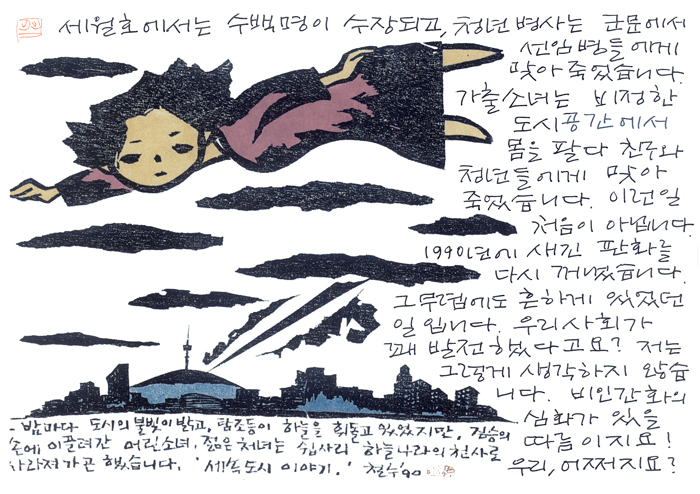 세월호에서는 수백명이 수장되고, 청년병사는 군문에서
선임병들에게
맞아 죽었습니다.
가출소녀는 비정한
도시공간에서
몸을 팔다 친구와
청년들에게 맞아
죽었습니다. 이런일
처음이 아닙니다.
1990년에 새긴 판화를
다시 꺼냈습니다.
그무렵에도 흔하게 있었던
일입니다. 우리사회가
꽤 발전했다고요? 저는
그렇게 생각하지 않습
니다. 비인간화의
심화가 있을
따름이지요!
우리, 어쩌지요?
- 밤마다 도시의 불빛이 밝고, 탐조등이 하늘을 휘돌고 있었지만, 짐승의
손에 이끌려간 어린소녀, 젊은처녀는 쉽사리 하늘나라의 천사로
사라져가곤 했습니다. '세속도시 이야기.' 철수 '90